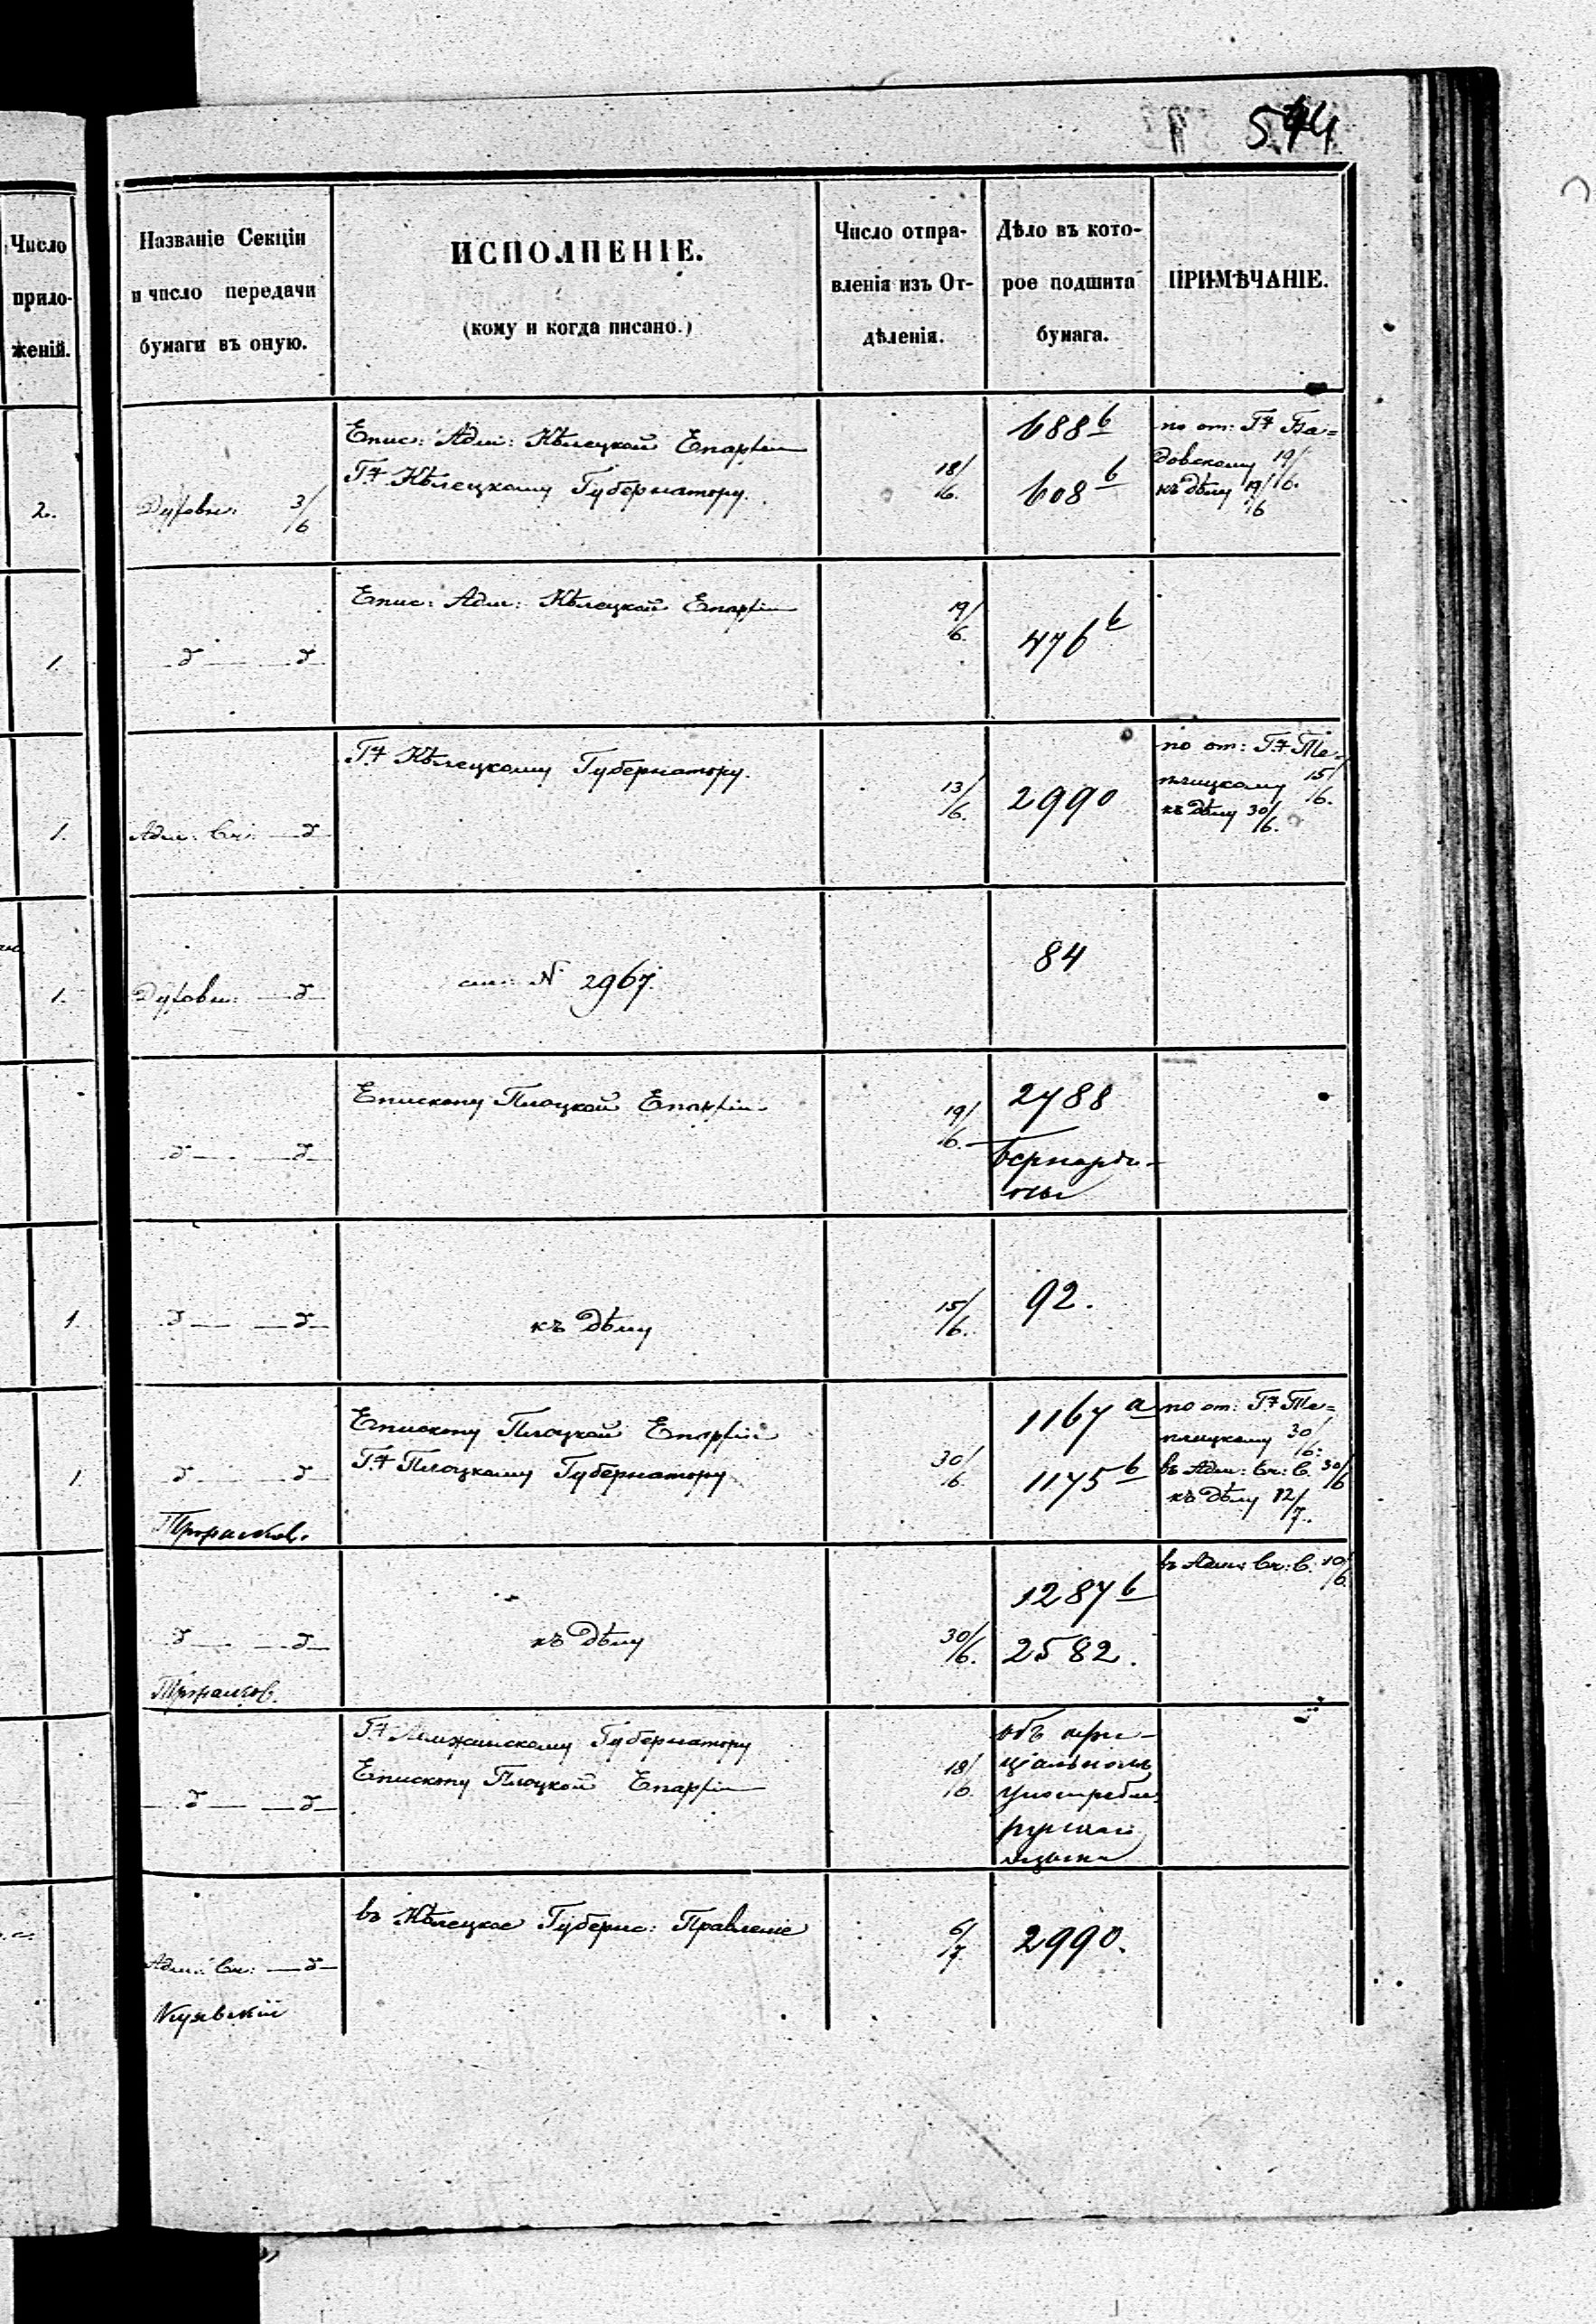 544
Число
прило-
женій.
Названіе Секціи
и число передачи
бумаги въ оную.
ИСПОЛНЕНІЕ.
(кому и когда писано.)
Число отпра-
вленія изъ От-
дѣленія.
Дѣло въ кото-
рое подшита
бумага.
ПРИМѢЧАНІЕ.
2.
Духовн: 3/6
Епис: Адм: Кѣлецкой Епархіи
Гну Кѣлецкому Губернатору.
18/6.
688 b
608 b
по от: Гну
довскому 19/6.
къ дѣлу 19/6
1.
д д
Епис: Адм: Кѣлецкой Епархіи
19/6.
476 b
1.
Адм: Сч: д
Гну Кѣлецкому Губернатору.
13/6.
2990
по от: Гну Те-
плицкому 15/6.
къ дѣлу 30/6.
1.
Духовн: д
см: N 2967.
84
д д
Епископу Плоцкой Епархіи
19/6.
2788
Бернарди-
ны
1.
д д
къ дѣлу
15/6.
92.
1.
д д
Епископу Плоцкой Епархіи
Гну Плоцкому Губернатору
30/6.
1167 a
1175 b
по от: Гну Те=
плицкому 30/6.
въ Адм: Сч: С. 30/6
къ дѣлу 12/7.
д д
къ дѣлу
30/6.
1287 b
2582.
въ Адм: Сч: С. 10/6
д д
Гну Ломжинскому Губернатору
Епископу Плоцкой Епархіи
18/6.
объ офи-
ціальномъ
употребл.
русскаго
языка
Адм: Сч: д
въ Кѣлецкое Губернс: Правленіе
6/7
2990.